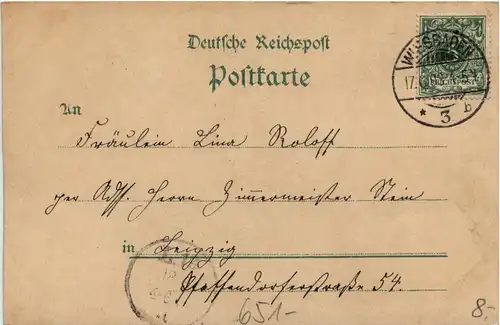 Deutsche Reichspost
Postkarte
WIESBADEN
17.
* 3 b
An
Fräulein Lina Roloff
per Adss. Herrn Zimmermeister Stein
in Leipzig
Pfaffendorferstraße 54.
651-
8.-